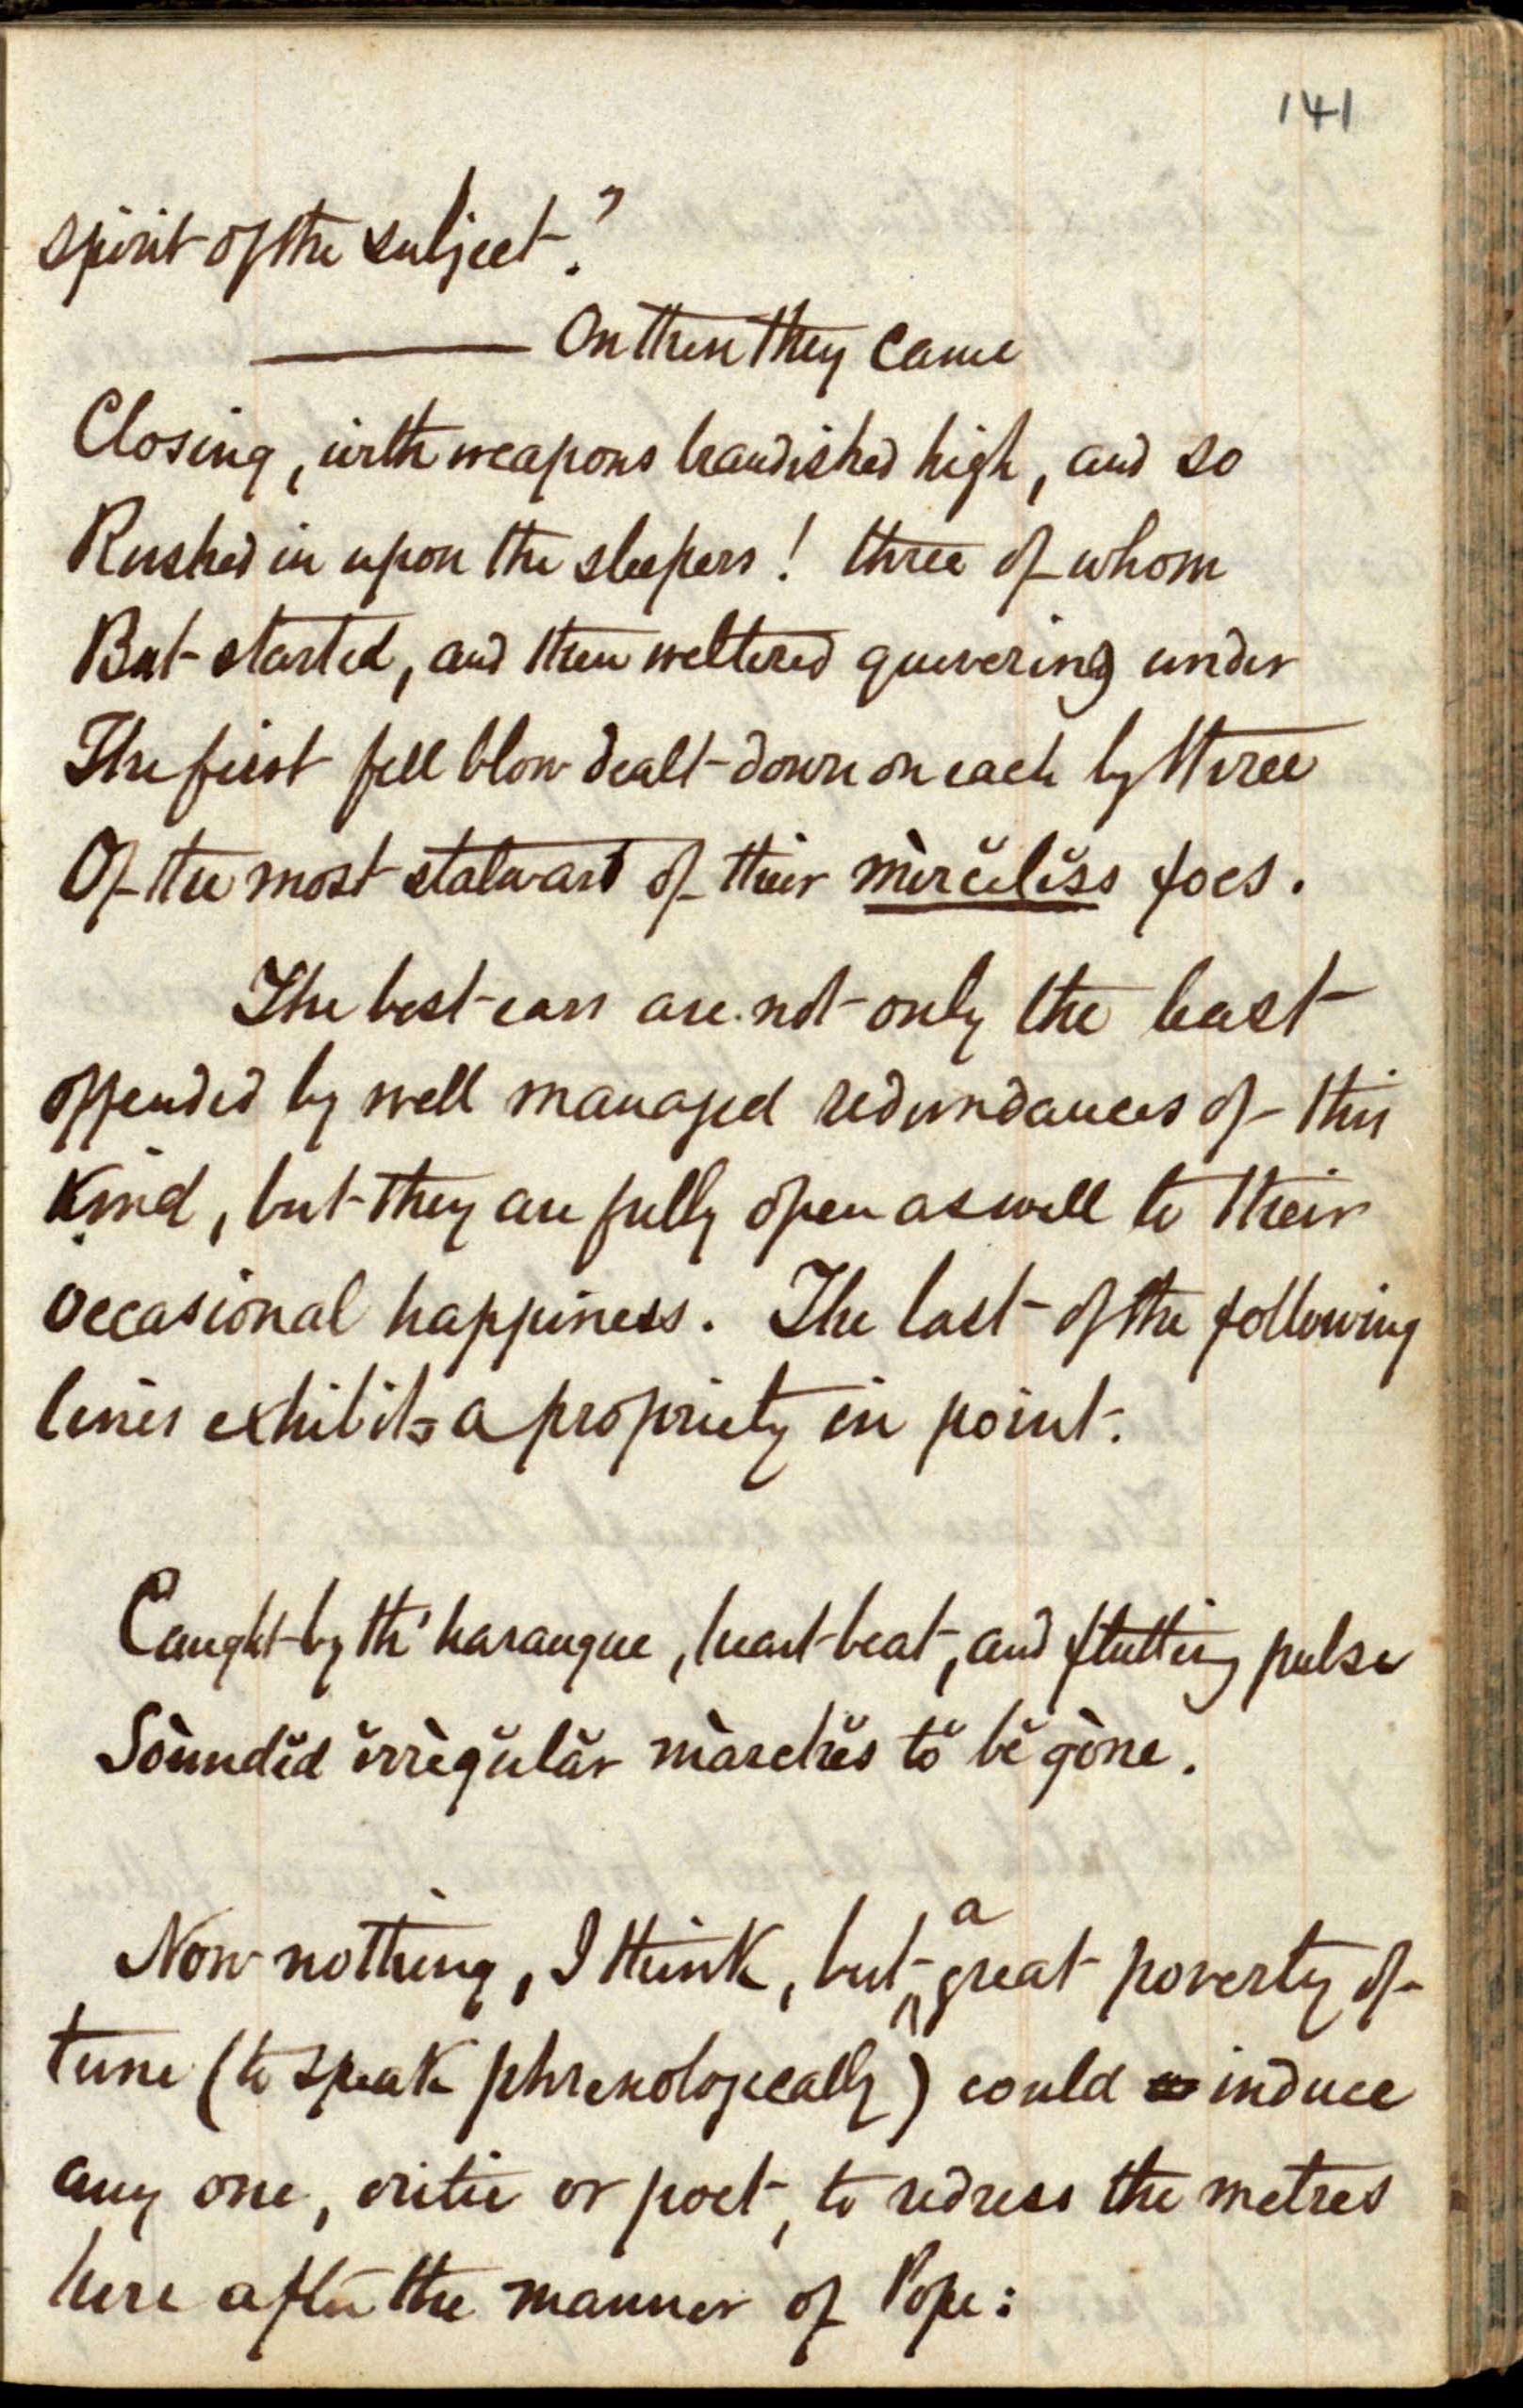 141
spirit of the subject?
——— On then they came
Closing, with weapons brandished high, and so
Rushed in upon the sleepers! three of whom
But started, and then weltered quivering under
The first fell blow dealt down on each by three
Of the most stalwart of their mèrcĭlĕss foes.
The best ears are not only the least
offended by well managed redundances of this
kind, but they are fully open as well to their
occasional happiness. The last of the following
lines exhibits a propriety in point.
Caught by th' harangue, heart beat, and flutt'ing pulse
Sòundĕd ĭrrègŭlăr màrchĕs tŏ bĕ gòne.
Now nothing, I think, but a great poverty of
tune (to speak phrenologically) could induce
any one, critic or poet, to redress the metres
here after the manner of Pope: